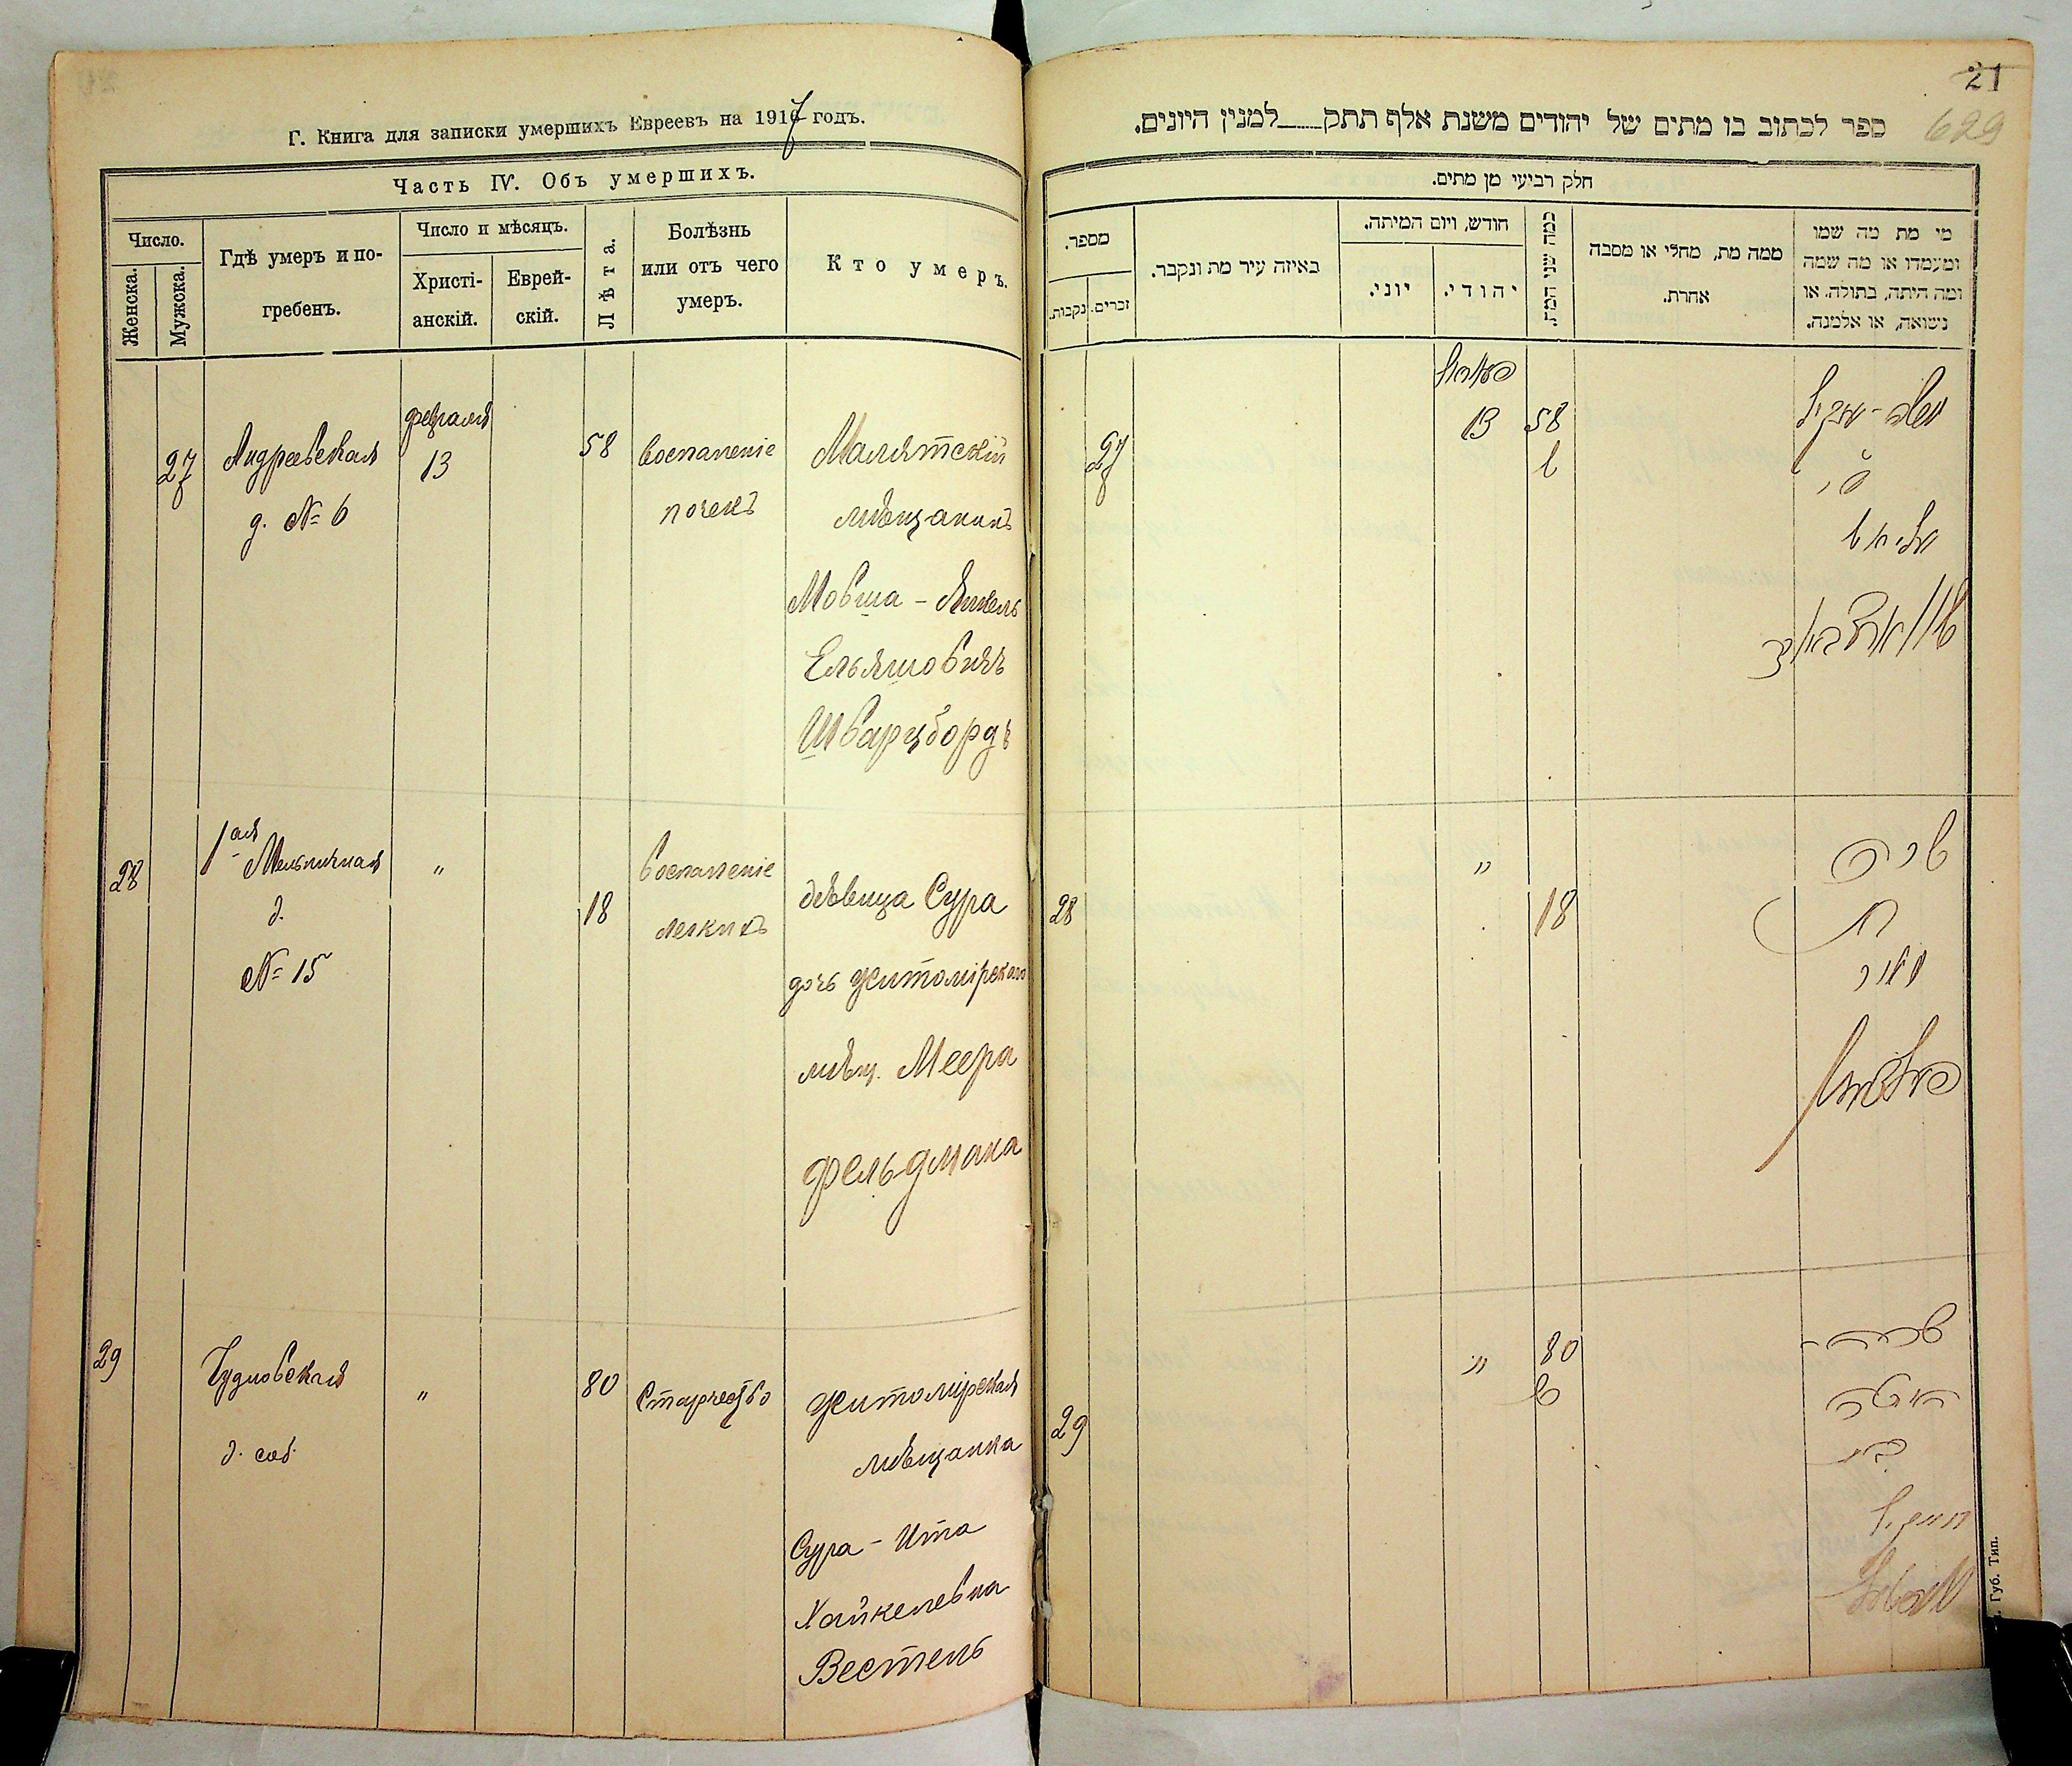 Г. Книга для записки умершихъ Евреевъ на 1917 годъ.
Часть IV. Объ умершихъ.
Число.
Женска.
Мужска.
Гдѣ умеръ и по-
гребенъ.
Число и мѣсяцъ.
Христі-
анскій.
Еврей-
скій.
Лѣта.
Болѣзнь
или отъ чего
умеръ.
Кто умеръ.
27
Андреевская
д. № 6
февраля
13
58
воспаленіе
почекъ
Малятскій
мѣщанинъ
Мовша - Янкель
Ельяшовичъ
Шварцбордъ
28
1ая Мельничная
д.
№ 15
"
18
воспаленіе
легкихъ
дѣвица Сура
дочь Житомірскаго
мѣщ. Меера
Фельдмана
29
Чудновская
д. соб.
"
80
Старчество
Житомірская
мѣщанка
Сура - Ита
Хайкелевна
Вестель
21
629
ספר לכתוב בו מתים של יהודים משנת אלף תתק למנין היונים.
חלק רביעי מן מתים.
מספר.
נקבות.
זכרים.
באיזה עיר מת ונקבר.
חודש, ויום המיתה.
יוני.
יהודי.
כמה שני המת.
ממה מת, מחלי או מסבה
אחרת.
מי מת מה שמו
ומעמדו או מה שמה
ומה היתה, בתולה, או
נשואה, או אלמנה.
27
13
58
28
"
18
שרה
בת
מאיר
פעלדמאן
29
"
80
שרה -
איטה
בת
חייקיל
וועסטעל
Губ. Тип.